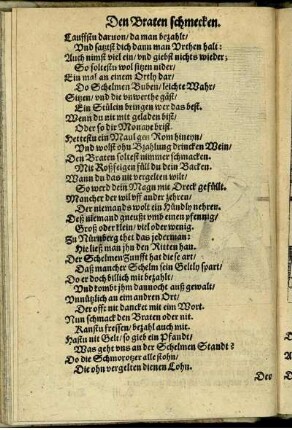 Den Braten schmecken.
Lauffstu daruon/ da man bezahlt/
Vnd satzst dich dann man Vrthen halt:
Auch nimst viel ein/ vnd giebst nichts wieder;
So soltestu wol sitzen nider/
Ein mal an einem Orth dar/
Do Schelmen Buben/ leichte Wahr/
Sitzen/ vnd die vnwerthe gäst/
Ein Stülein bringen wer das best.
Wenn du nit mit geladen bist/
Oder so dir Monaye brist.
Hettestu ein Maul gen Rom hineyn/
Vnd wolst ohn Bzahlung drincken Wein/
Den Braten soltest nimmer schmacken.
Mit Roßfeigen füll du dein Backen.
Wann du das nit vergelten wilt/
So werd dein Magn mit Dreck gefüllt.
Mancher der wil vff ander zehren/
Der niemands wolt ein Hündly nehren.
Deß niemand gneust vmb einen pfennig/
Groß oder klein/ viel oder wenig.
Zu Nürnberg thet das jederman:
Hie ließ man jhn den Ritten han.
Der Schelmen Zunfft hat die se art/
Daß mancher Schelm sein Geltly spart/
Do er doch billich mit bezahlt/
Vnd kombt jhm dannocht auß gewalt/
Vnnützlich an em andren Ort/
Der offt nit dancket mit ein Wort.
Nun schmack den Braten oder nit.
Kanstu fressen/ bezal auch mit.
Hastu nit Gelt/ so gieb ein Pfandt/
Was geht vns an der Schelmen Standt?
Do die Schmorotzer alle stohn/
Die ohn vergelten dienen Lohn.
Der